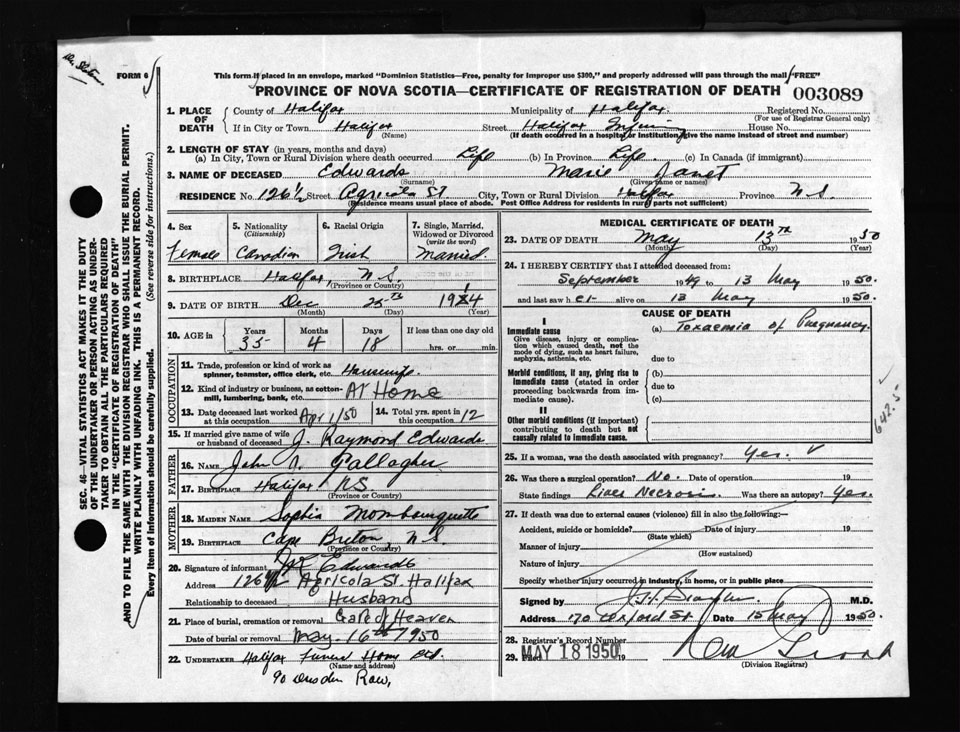 FORM 6
This form if placed in an envelope, marked "Dominion Statistics—Free, penalty for improper use $300," and properly addressed will pass through the mail "FREE"
PROVINCE OF NOVA SCOTIA—CERTIFICATE OF REGISTRATION OF DEATH 003089
1. PLACE OF DEATH County of Halifax Municipality of Halifax Registered No.
(For use of Registrar General only)
If in City or Town Halifax Street Halifax House No.
(Name) (If death occurred in a hospital or institution, give the name instead of street and number)
2. LENGTH OF STAY (in years, months and days)
(a) In City, Town or Rural Division where death occurred Life (b) In Province Life (c) In Canada (if immigrant)
3. NAME OF DECEASED Edwards Marie Janet
(Surname) (Given name or names)
RESIDENCE No. 126½ Street Agricola St City, Town or Rural Division Halifax Province N.S.
(Residence means usual place of abode. Post Office Address for residents in rural parts not sufficient)
4. Sex 5. Nationality (Citizenship) 6. Racial Origin 7. Single, Married, Widowed or Divorced (write the word)
Female Canadian Irish Married.
8. BIRTHPLACE Halifax N.S.
(Province or Country)
9. DATE OF BIRTH Dec 25th 1914
(Month) (Day) (Year)
10. AGE in Years Months Days If less than one day old
35 4 18 hrs. or min.
OCCUPATION
11. Trade, profession or kind of work as spinner, teamster, office clerk, etc. Housewife
12. Kind of industry or business, as cotton-mill, lumbering, bank, etc. At Home
13. Date deceased last worked at this occupation Apr 1/50 14. Total yrs. spent in 12
15. If married give name of wife or husband of deceased J. Raymond Edwards
FATHER
16. Name John Gallagher
17. Birthplace Halifax NS
(Province or Country)
MOTHER
18. MAIDEN NAME Sophia Mombourquette
19. BIRTHPLACE Cape Breton, N.S.
(Province or Country)
20. Signature of informant Edwards
Address 126½ Agricola St. Halifax
Relationship to deceased Husband
21. Place of burial, cremation or removal Gate of Heaven
Date of burial or removal May. 16th 1950
22. UNDERTAKER Halifax Funeral Home Ltd.
(Name and address)
90 Dresden Row,
MEDICAL CERTIFICATE OF DEATH
23. DATE OF DEATH May 13th 1950
(Month) (Day) (Year)
24. I HEREBY CERTIFY that I attended deceased from:
September 1949 to 13 May 1950.
and last saw her alive on 13 May 1950.
CAUSE OF DEATH
I
Immediate cause (a) Toxaemia of Pregnancy.
Give disease, injury or complication which caused death, not the mode of dying, such as heart failure, asphyxia, asthenia, etc.
due to
Morbid conditions, if any, giving rise to immediate cause (stated in order proceeding backwards from immediate).
(b)
due to
(c)
II
Other morbid conditions (if important) contributing to death but not causally related to immediate cause.
642.5
25. If a woman, was the death associated with pregnancy? Yes.
26. Was there a surgical operation? No. Date of operation 19
State findings Liver Necrosis. Was there an autopsy? Yes.
27. If death was due to external causes (violence) fill in also the following:
Accident, suicide or homicide? Date of injury 19
(State which)
Manner of injury
(How sustained)
Nature of injury
Specify whether injury occurred in industry, in home, or in public place
Signed by M.D.
Address 170 Oxford St. Date 15 May 1950.
28. Registrar's Record Number
29. Filed MAY 18 1950 19
(Division Registrar)
SEC. 46—VITAL STATISTICS ACT MAKES IT THE DUTY
OF THE UNDERTAKER OR PERSON ACTING AS UNDER-
TAKER TO OBTAIN ALL THE PARTICULARS REQUIRED
IN THE "CERTIFICATE OF REGISTRATION OF DEATH"
AND TO FILE THE SAME WITH THE DIVISION REGISTRAR WHO SHALL ISSUE THE BURIAL PERMIT.
WRITE PLAINLY WITH UNFADING INK. THIS IS A PERMANENT RECORD.
Every item of information should be carefully supplied. (See reverse side for instructions.)